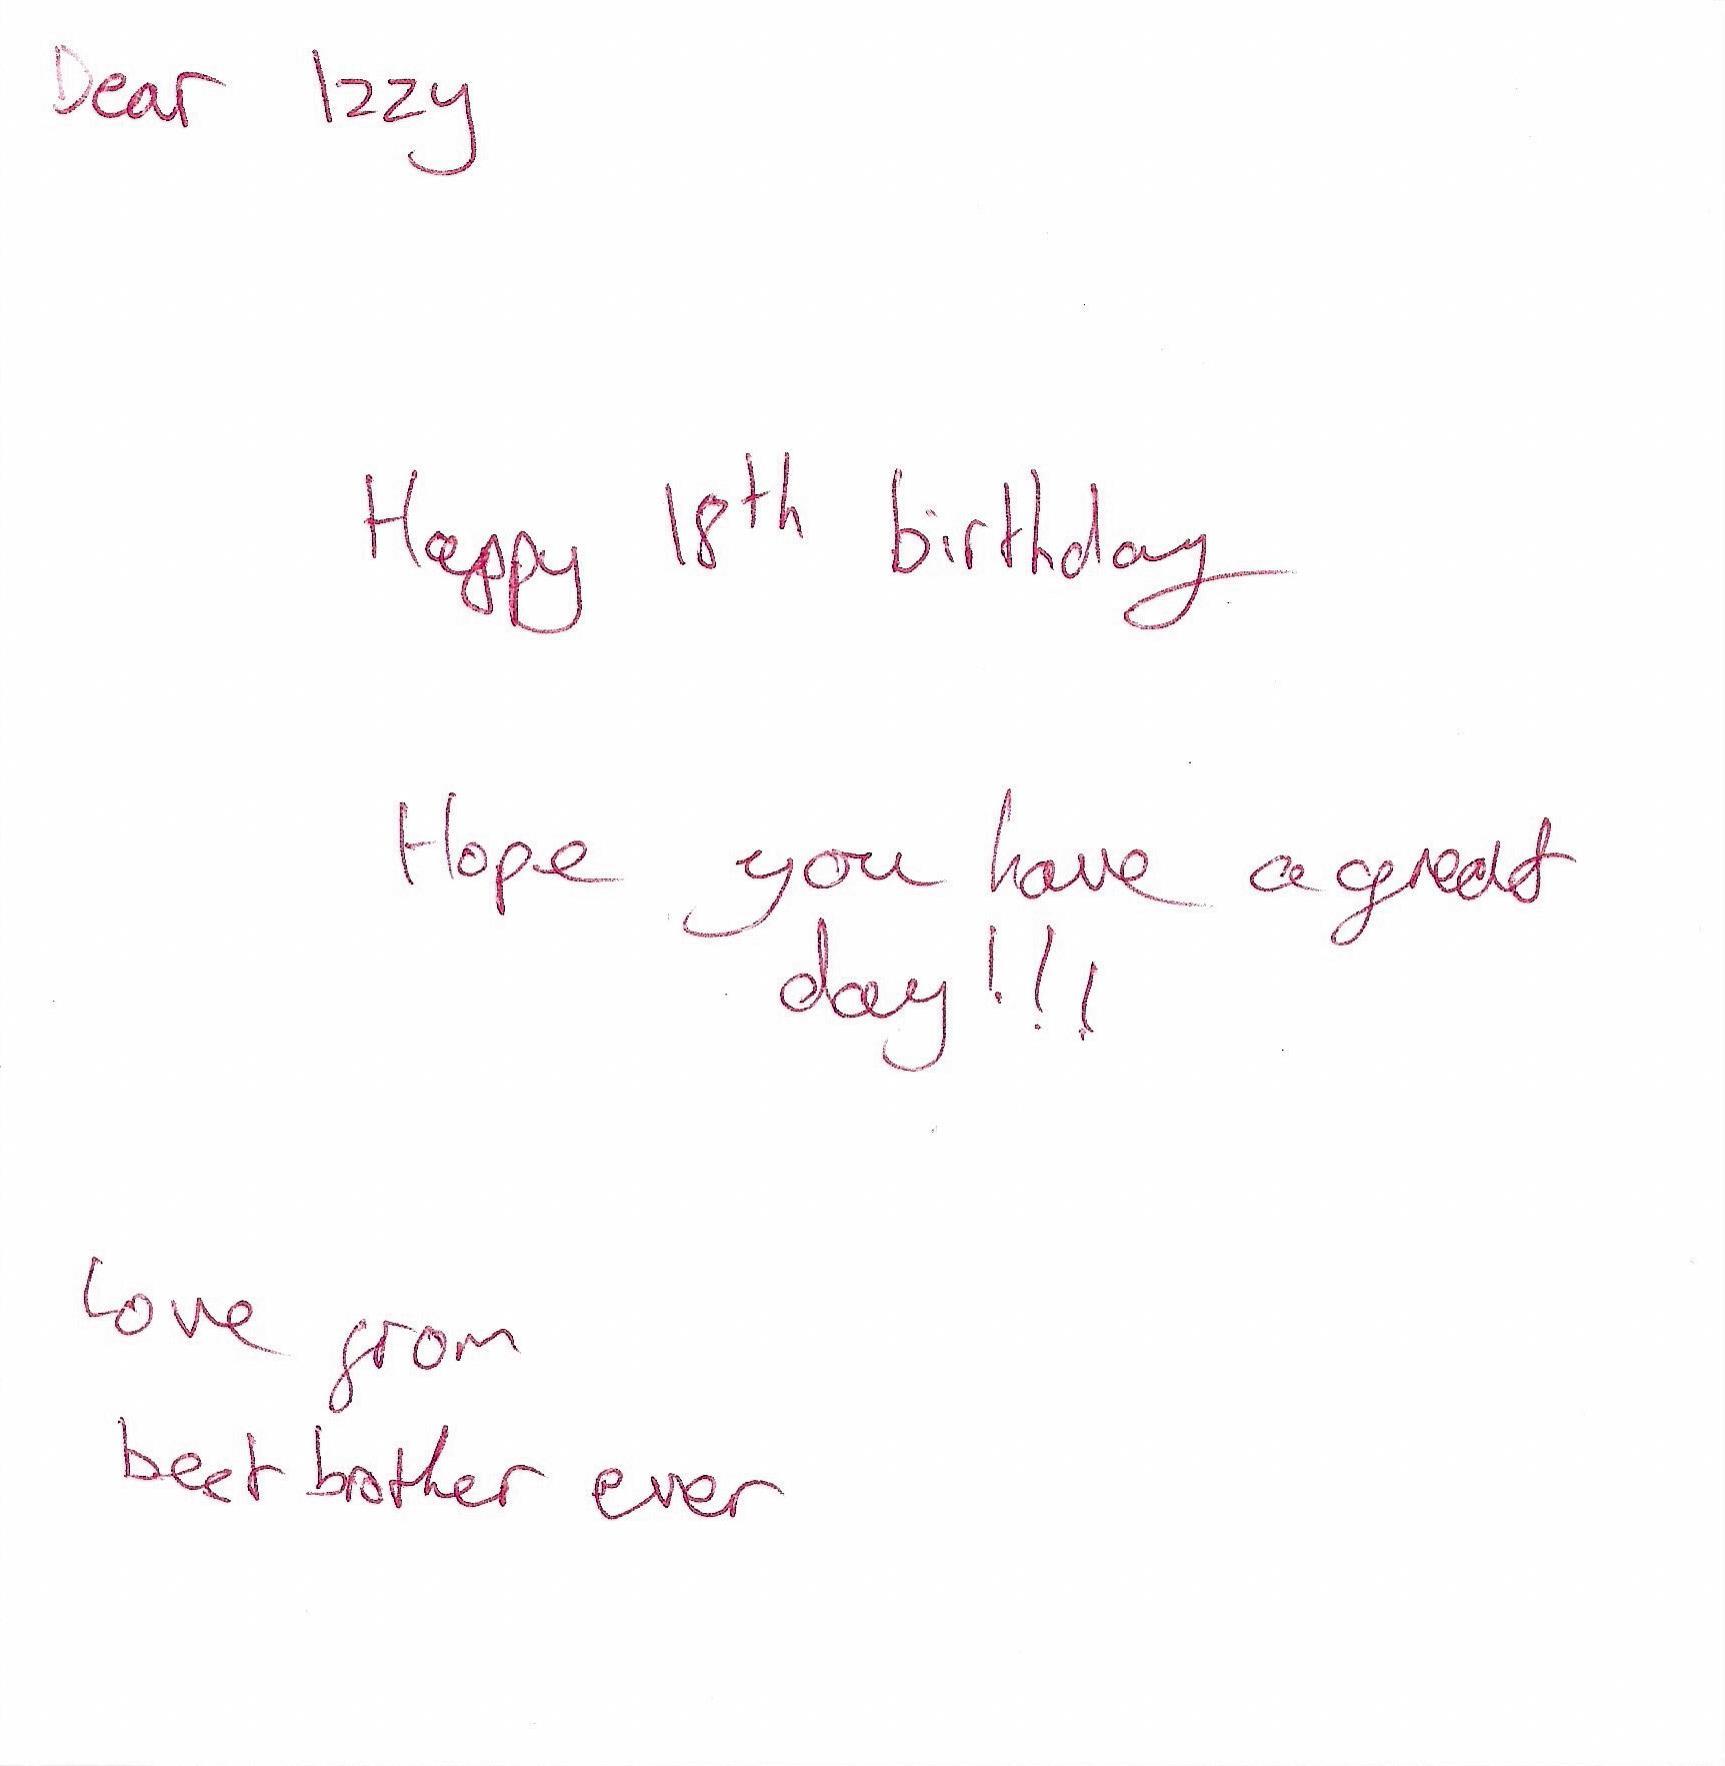 Dear Izzy
Happy 18th birthday
Hope you have a great
day!!!
Love from
best brother ever